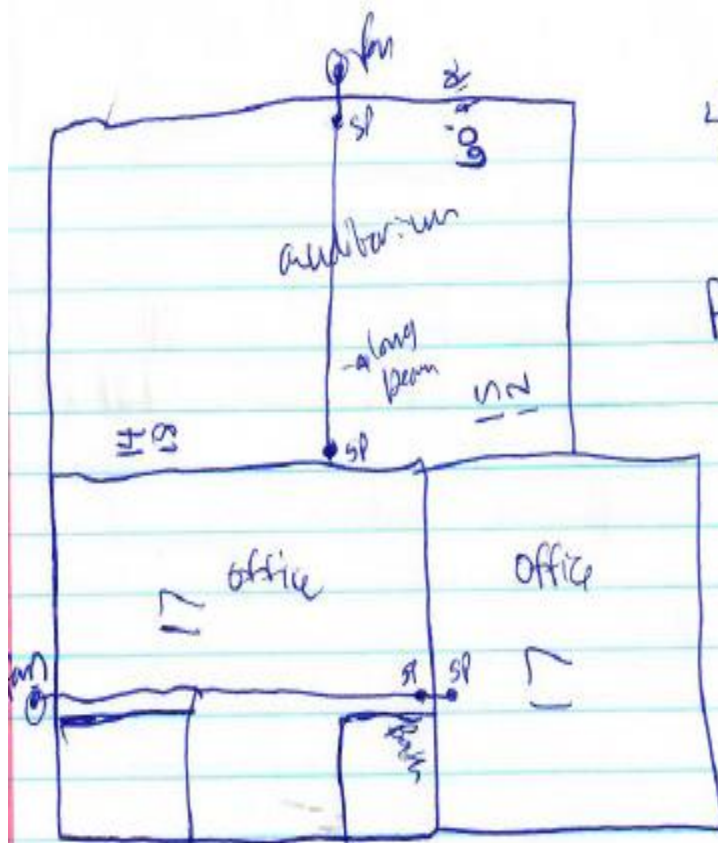 fan
SP
auditorium
long
beam
SP
office
office
17
17
fan
SP
SP
Bath